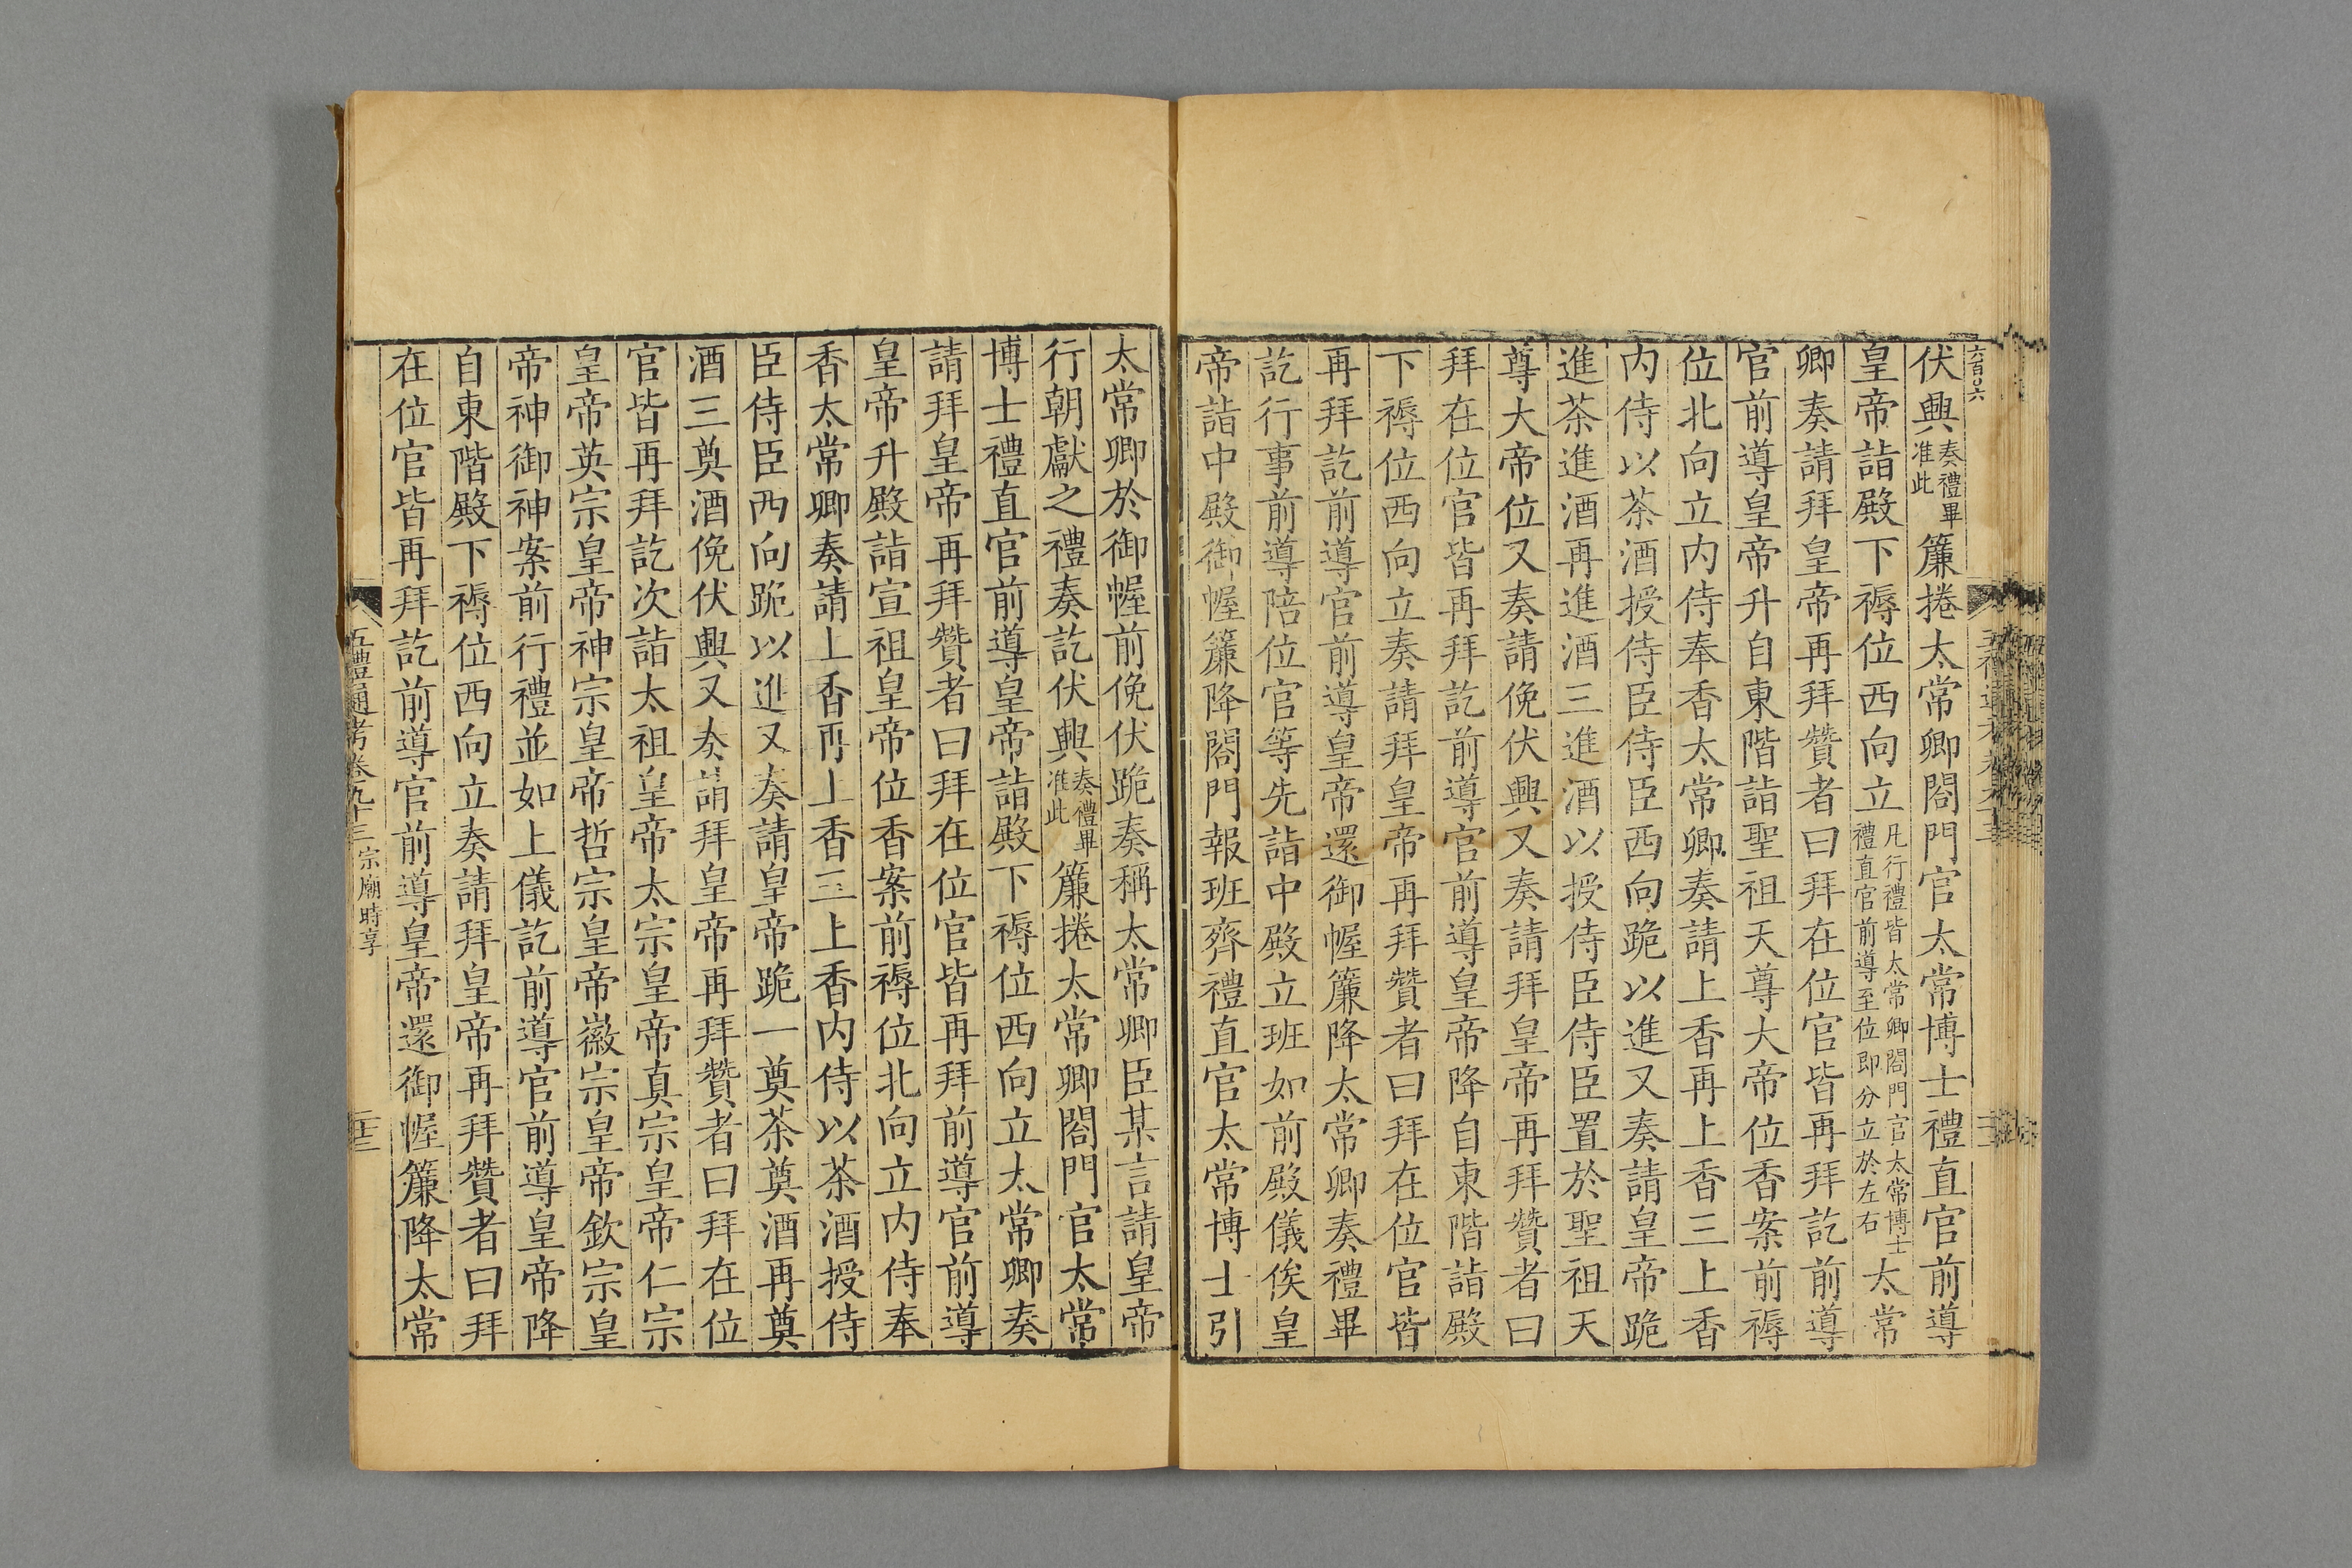 六百〇六
伏興奏禮畢准此簾捲太常卿閤門官太常博士禮直官前導
皇帝詣殿下褥位西向立凡行禮皆太常卿閤門官太常博士禮直官前導至位即分立於左右太常
卿奏請拜皇帝再拜贊者曰拜在位官皆再拜訖前導
官前導皇帝升自東階詣聖祖天尊大帝位香案前褥
位北向立内侍奉香太常卿奏請上香再上香三上香
内侍以茶酒授侍臣侍臣西向跪以進又奏請皇帝跪
進茶進酒再進酒三進酒以授侍臣侍臣置於聖祖天
尊大帝位又奏請俛伏興又奏請拜皇帝再拜贊者曰
拜在位官皆再拜訖前導官前導皇帝降自東階詣殿
下褥位西向立奏請拜皇帝再拜贊者曰拜在位官皆
再拜訖前導官前導皇帝還御幄簾降太常卿奏禮畢
訖行事前導陪位官等先詣中殿立班如前殿儀俟皇
帝詣中殿御幄簾降閤門報班齊禮直官太常博士引
太常卿於御幄前俛伏跪奏稱太常卿臣某言請皇帝
行朝獻之禮奏訖伏興奏禮畢准此簾捲太常卿閤門官太常
博士禮直官前導皇帝詣殿下褥位西向立太常卿奏
請拜皇帝再拜贊者曰拜在位官皆再拜前導官前導
皇帝升殿詣宣祖皇帝位香案前褥位北向立内侍奉
香太常卿奏請上香再上香三上香内侍以茶酒授侍
臣侍臣西向跪以進又奏請皇帝跪一奠茶奠酒再奠
酒三奠酒俛伏興又奏請拜皇帝再拜贊者曰拜在位
官皆再拜訖次詣太祖皇帝太宗皇帝真宗皇帝仁宗
皇帝英宗皇帝神宗皇帝哲宗皇帝徽宗皇帝欽宗皇
帝神御神案前行禮並如上儀訖前導官前導皇帝降
自東階殿下褥位西向立奏請拜皇帝再拜贊者曰拜
在位官皆再拜訖前導官前導皇帝還御幄簾降太常
五禮通考卷九十三 宗廟時享